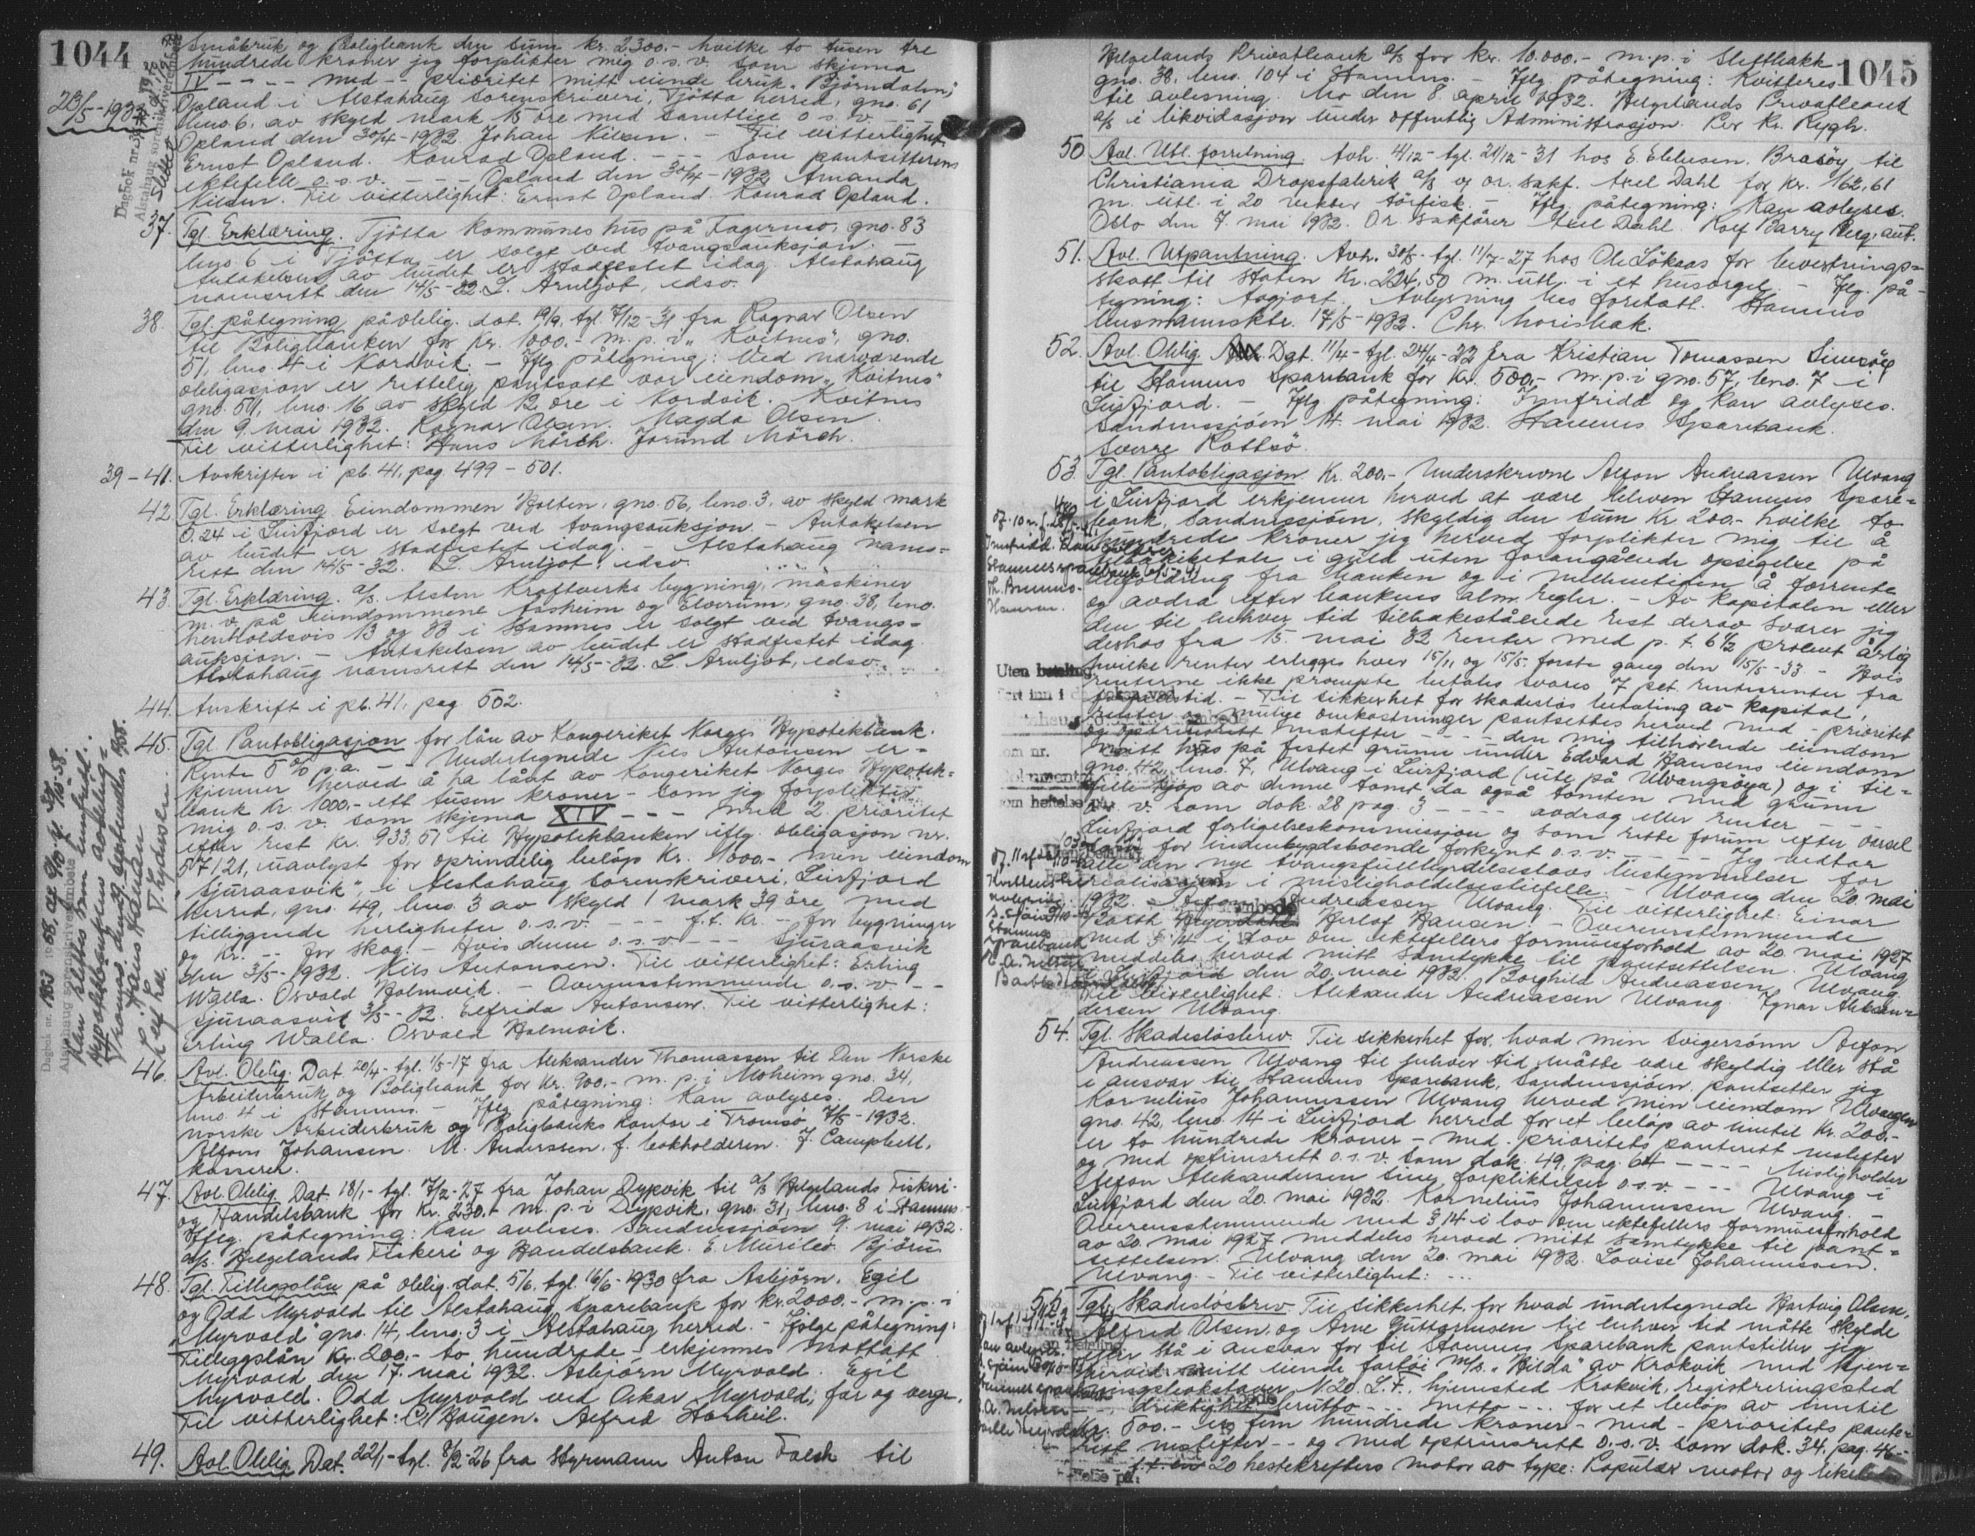 1044
23/5-1932
Småbruk og Boligbank den sum kr. 2300.- hvilke to tusen tre
hundrede kroner jeg forplikter mig o.s.v. som skjema
IV - - - - med - prioritet mitt eiende bruk "Bjørndalen",
Opland i Alstahaug sorenskriveri, Tjøtta herred, gno. 61
bno. 6. av skyld mark 15 øre med samtlige o.s.v.
Opland den 30/4-1932 Johan Nilsen. - Til vitterlighet
Ernst Opland. Konrad Opland. - - - Som pantsetterens
ektefelle o.s.v. - - - Opland den 30/4-1932 Amanda
Nilsen. Til vitterlighet: Ernst Opland. Konrad Opland.
37. Tgl. Erklæring. Tjøtta kommunes hus på Fagernes, gno. 83
bno. 6 i Tjøtta er solgt ved tvangsauksjon. -
Antakelsen av budet er stadfestet idag. Alstahaug
namsrett den 14/5-32. L. Arntjot, edsv.
38. Tgl. påtegning på oblig. dat. 19/9, tgl 7/12-31 fra Ragnar Olsen
til Boligbanken for kr. 1000.- m.p. i "Kvitnes", gno.
51, bno. 4 i Nordvik. - Iflg påtegning: Ved nærværende
obligasjon er rettelig pantsatt vor eiendom "Kvitnes"
gno. 51, bno. 16 av skyld 12 øre i Nordvik. Kvitnes
den 9. mai 1932. Ragnar Olsen. Magda Olsen.
Til vitterlighet: Hans Mörch. Jorund Mörch.
39-41. Avskrifter i pb. 41, pag. 499-501.
42. Tgl. Erklæring. Eiendommen Bolten, gno. 56, bno. 3, av skyld mark
0.24 i Leirfjord er solgt ved tvangsauksjon. - Antakelsen
av budet er stadfestet idag. - Alstahaug nams-
rett den 14/5-32. L. Arntjot, edsv.
43. Tgl. Erklæring. A/S Alsten Kraftverks bygning, maskiner
m.v. på eiendommene Aasheim og Elverum, gno. 38, bno.
henholdsvis 13 og 83 i Stamnes er solgt ved tvangs-
auksjon. - Antakelsen av budet er stadfestet idag.
Alstahaug namsrett den 14/5-32. L. Arntjot, edsv.
44. Avskrift i pb. 41, pag 502.
45. Tgl. Pantobligasjon for lån av Kongeriket Norges Hypotekbank.
Rente 5 % p.a. - Undertegnede Nils Antonsen er-
kjenner herved å ha lånt av Kongeriket Norges Hypotek-
bank kr. 1000.- ett tusen kroner - som jeg forplikter
mig o.s.v. som skjema XIV - - - med 2 prioritet
efter rest kr. 933,51 til Hypotekbanken iflg. obligasjon nr.
57121, uavlyst for oprindelig beløp kr. 1000.- men eiendom
"Sjuraasvik", i Alstahaug sorenskriveri, Leirfjord
herred, gno. 49, bno. 3 av skyld 1 mark 39 øre, med
tilliggende herligheter o.s.v. - - - f.t. kr - for bygninger
og kr. - - for skog. - Hvis denne o.s.v. - - - Sjuraasvik
den 3/5-1932. Nils Antonsen. Til vitterlighet: Erling
Walla. Osvald Holmvik. - Overensstemmende o.s.v. - -
Sjuraasvik 3/5-32. Elfrida Antonsen. Til vitterlighet:
Erling Walla. Osvald Holmvik.
46. Avl. Oblig. Dat. 20/4-tgl. 1/5-17 fra Aleksander Thomassen til Den Norske
Arbeiderbruk og Boligbank for kr. 900.- m.p. i Moheim gno. 34,
bno. 4 i Stamnes. - Iflg påtegning: Kan avlyses. Den
norske Arbeiderbruk og Boligbanks kontor i Tromsø 7/5-1932.
Alfons Johansen. M. Anderssen, f. bokholderen. J. Campbell,
kasserer.
47. Avl. Oblig. Dat. 18/1-tgl. 7/2-27 fra Johan Dypvik til A/S Helgelands Fiskeri-
og Handelsbank for kr. 230.- m.p. i Dypvik, gno. 31, bno. 8 i Stamnes.-
Iflg. påtegning: Kan avlyses. Sandnessjøen 9. mai 1932.
A/S. Helgelands Fiskeri og Handelsbank. E. Murileø Bjørn
48. Tgl. Tilleggslån på oblig. dat. 5/6. tgl 16/6-1930 fra Asbjørn, Egil
og Odd Myrvold til Alstahaug Sparebank for kr. 2000.- m.p. i
"Myrvold" gno. 14, bno. 3 i Alstahaug herred. - Ifølge påtegning:
Tilleggslån kr. 200.- to hundrede - erkjennes mottatt.
Myrvold den 17. mai 1932. Asbjørn Myrvold. Egil
Myrvold. Odd Myrvold ved Oskar Myrvold, far og verge.
Til vitterlighet: C. Haugen. Alfred Storheil.
49. Avl. Oblig. Dat. 22/1-tgl. 8/2-26 fra Styrmann Anton Falch til
1045
Helgelands Privatbank A/S for kr. 10.000.- m.p. i Slettbakk
gno. 38, bno. 104 i Stamnes. - Iflg. påtegning: Kvitteres
til avlesning. Mo den 8. april 1932. Helgelands Privatbank
A/S i likvidasjon under offentlig Administrasjon. Per Kr. Rygh.
50 Avl. Utl. forretning. Avh. 4/12-tgl. 21/12-31 hos E. Ellusen. Brasøy til
Christiania Dropsfabrik A/S og or. sakf. Axel Dahl for kr. 162,61
m. utl. i 20 vekter tørfisk. - Iflg. påtegning: Kan avlyses.
Oslo den 7. mai 1932. Or. sakfører Axel Dahl. Rolf Barry Berg, aut.
51. Avl. Utpantning. Avh. 30/5-tgl. 11/7-27 hos Ole Løkaas for bevertnings-
skatt til Staten kr. 224,50 m. utl. i et husorgel. - Iflg. på-
tegning: Avgjort. Avlysning bes foretatt. Stamnes
lensmannsktr. 17/5-1932. Chr. Morisbak.
52. Avl. Oblig. Dat. 11/4-tgl. 24/4-22 fra Kristian Tomassen Simsøy
til Stamnes Sparebank for kr. 500.- m.p. i gno. 57, bno. 7 i
Leirfjord. - Iflg påtegning: Innfridd og kan avlyses.
Sandnessjøen 14. mai 1932. Stamnes Sparebank.
Sverre Rottsø.
53. Tgl. Pantobligasjon kr. 200.- Underskrevne Alfon Andreassen Ulvang
i Leirfjord erkjenner herved at være bleven Stamnes Spare-
bank, Sandnessjøen, skyldig den sum kr 200.- hvilke to
hundrede kroner jeg herved forplikter mig til å
tilbakebetale i guld uten forangående opsigelse på
fra banken og i mellemtiden å forrente
og avdra efter bankens alm. regler. - Av kapitalen eller
den til enhver tid tilbakestående rest derav svarer jeg
deshos fra 15. mai 32 renter med p.t. 6 1/2 procent årlig
hvilke renter erlegges hver 15/11 og 15/5. første gang den 15/5-33 - Hvis
renterne ikke prompte betales svares 7 pct. rentesrenter fra
forfallstid. - Til sikkerhet for skadesløs betaling av kapital,
renter og mulige omkostninger pantsettes herved med - prioritet
og optrinsrett nestefter - - - den mig tilhørende eiendom
mitt hus på festet grunn under Edvard Hansens eiendom
gno. 42, bno. 7, Ulvang i Leirfjord (ute på Ulvangsøya) og i til-
felle kjøp av denne tomt da også tomten med grunn
o.s.v. som dok. 28 pag. 3 - - - avdrag eller renter - -
Leirfjord forlikelseskommissjon og som rette forum efter varsel
for innenbygdsboende forkynt o.s.v. - - - Jeg vedtar
alle den nye tvangsfullbyrdelseslovs bestemmelser for
realisasjon i misligholdelsestilfelle. - Ulvang den 20. mai
1932. Alfon Andreassen Ulvang. Til vitterlighet: Einar
Herlof Hansen. - Overensstemmende
med § 14 i lov om ektefellers formuesforhold av 20. mai 1927
meddeles herved mitt samtykke til pantsettelsen. Ulvang
i Leirfjord den 20. mai 1932. Borghild Andreassen Ulvang
Til vitterlighet: Aleksander Andreassen Ulvang. Egnar Aleksan-
dersen Ulvang.
54. Tgl. Skadesløsbrev. Til sikkerhet for hvad min svigersønn Alfon
Andreassen Ulvang til enhver tid måtte være skyldig eller stå
i ansvar til Stamnes Sparebank, Sandnessjøen, pantsetter jeg
Kornelius Johannessen Ulvang herved min eiendom Ulvangen
gno. 42, bno. 14 i Leirfjord herred for et beløp av inntil kr. 200.-
er to hundrede kroner - med - prioritets panterett nestefter
og med optrinsrett o.s.v. som dok. 49, pag. 64 - - - - Misligholder
Alfon Aleksandersen sine forpliktelser o.s.v. - - - Ulvang i
Leirfjord den 20. mai 1932. Kornelius Johannessen Ulvang. -
Overensstemmende med § 14 i lov om ektefellers formuesforhold
av 20. mai 1927 meddeles herved mitt samtykke til pant-
settelsen. Ulvang den 20. mai 1932. Lovise Johannessen.
Ulvang. - Til vitterlighet: ...
55. Tgl. Skadesløsbrev. Til sikkerhet for hvad undertegnede Hartvig Olsen,
Alfred Olsen, og Arne Guttormsen til enhver tid måtte skylde
eller stå i ansvar for til Stamnes Sparebank pantstiller jeg
herved mitt eiende fartøi M/S. "Hilda" av Krokvik med kjen-
ningsbokstaver N 20. L.F., hjemsted Krokvik, registreringssted
- - - drektighet brutto - - - netto - - - for et beløp av inntil
kr. 500.- er fem hundrede kroner - med - prioritets pante-
rett nestefter - - og med optrinsrett o.s.v. som dok. 34, pag. 46 -
20 hestekrefters motor av type: Populær motor og